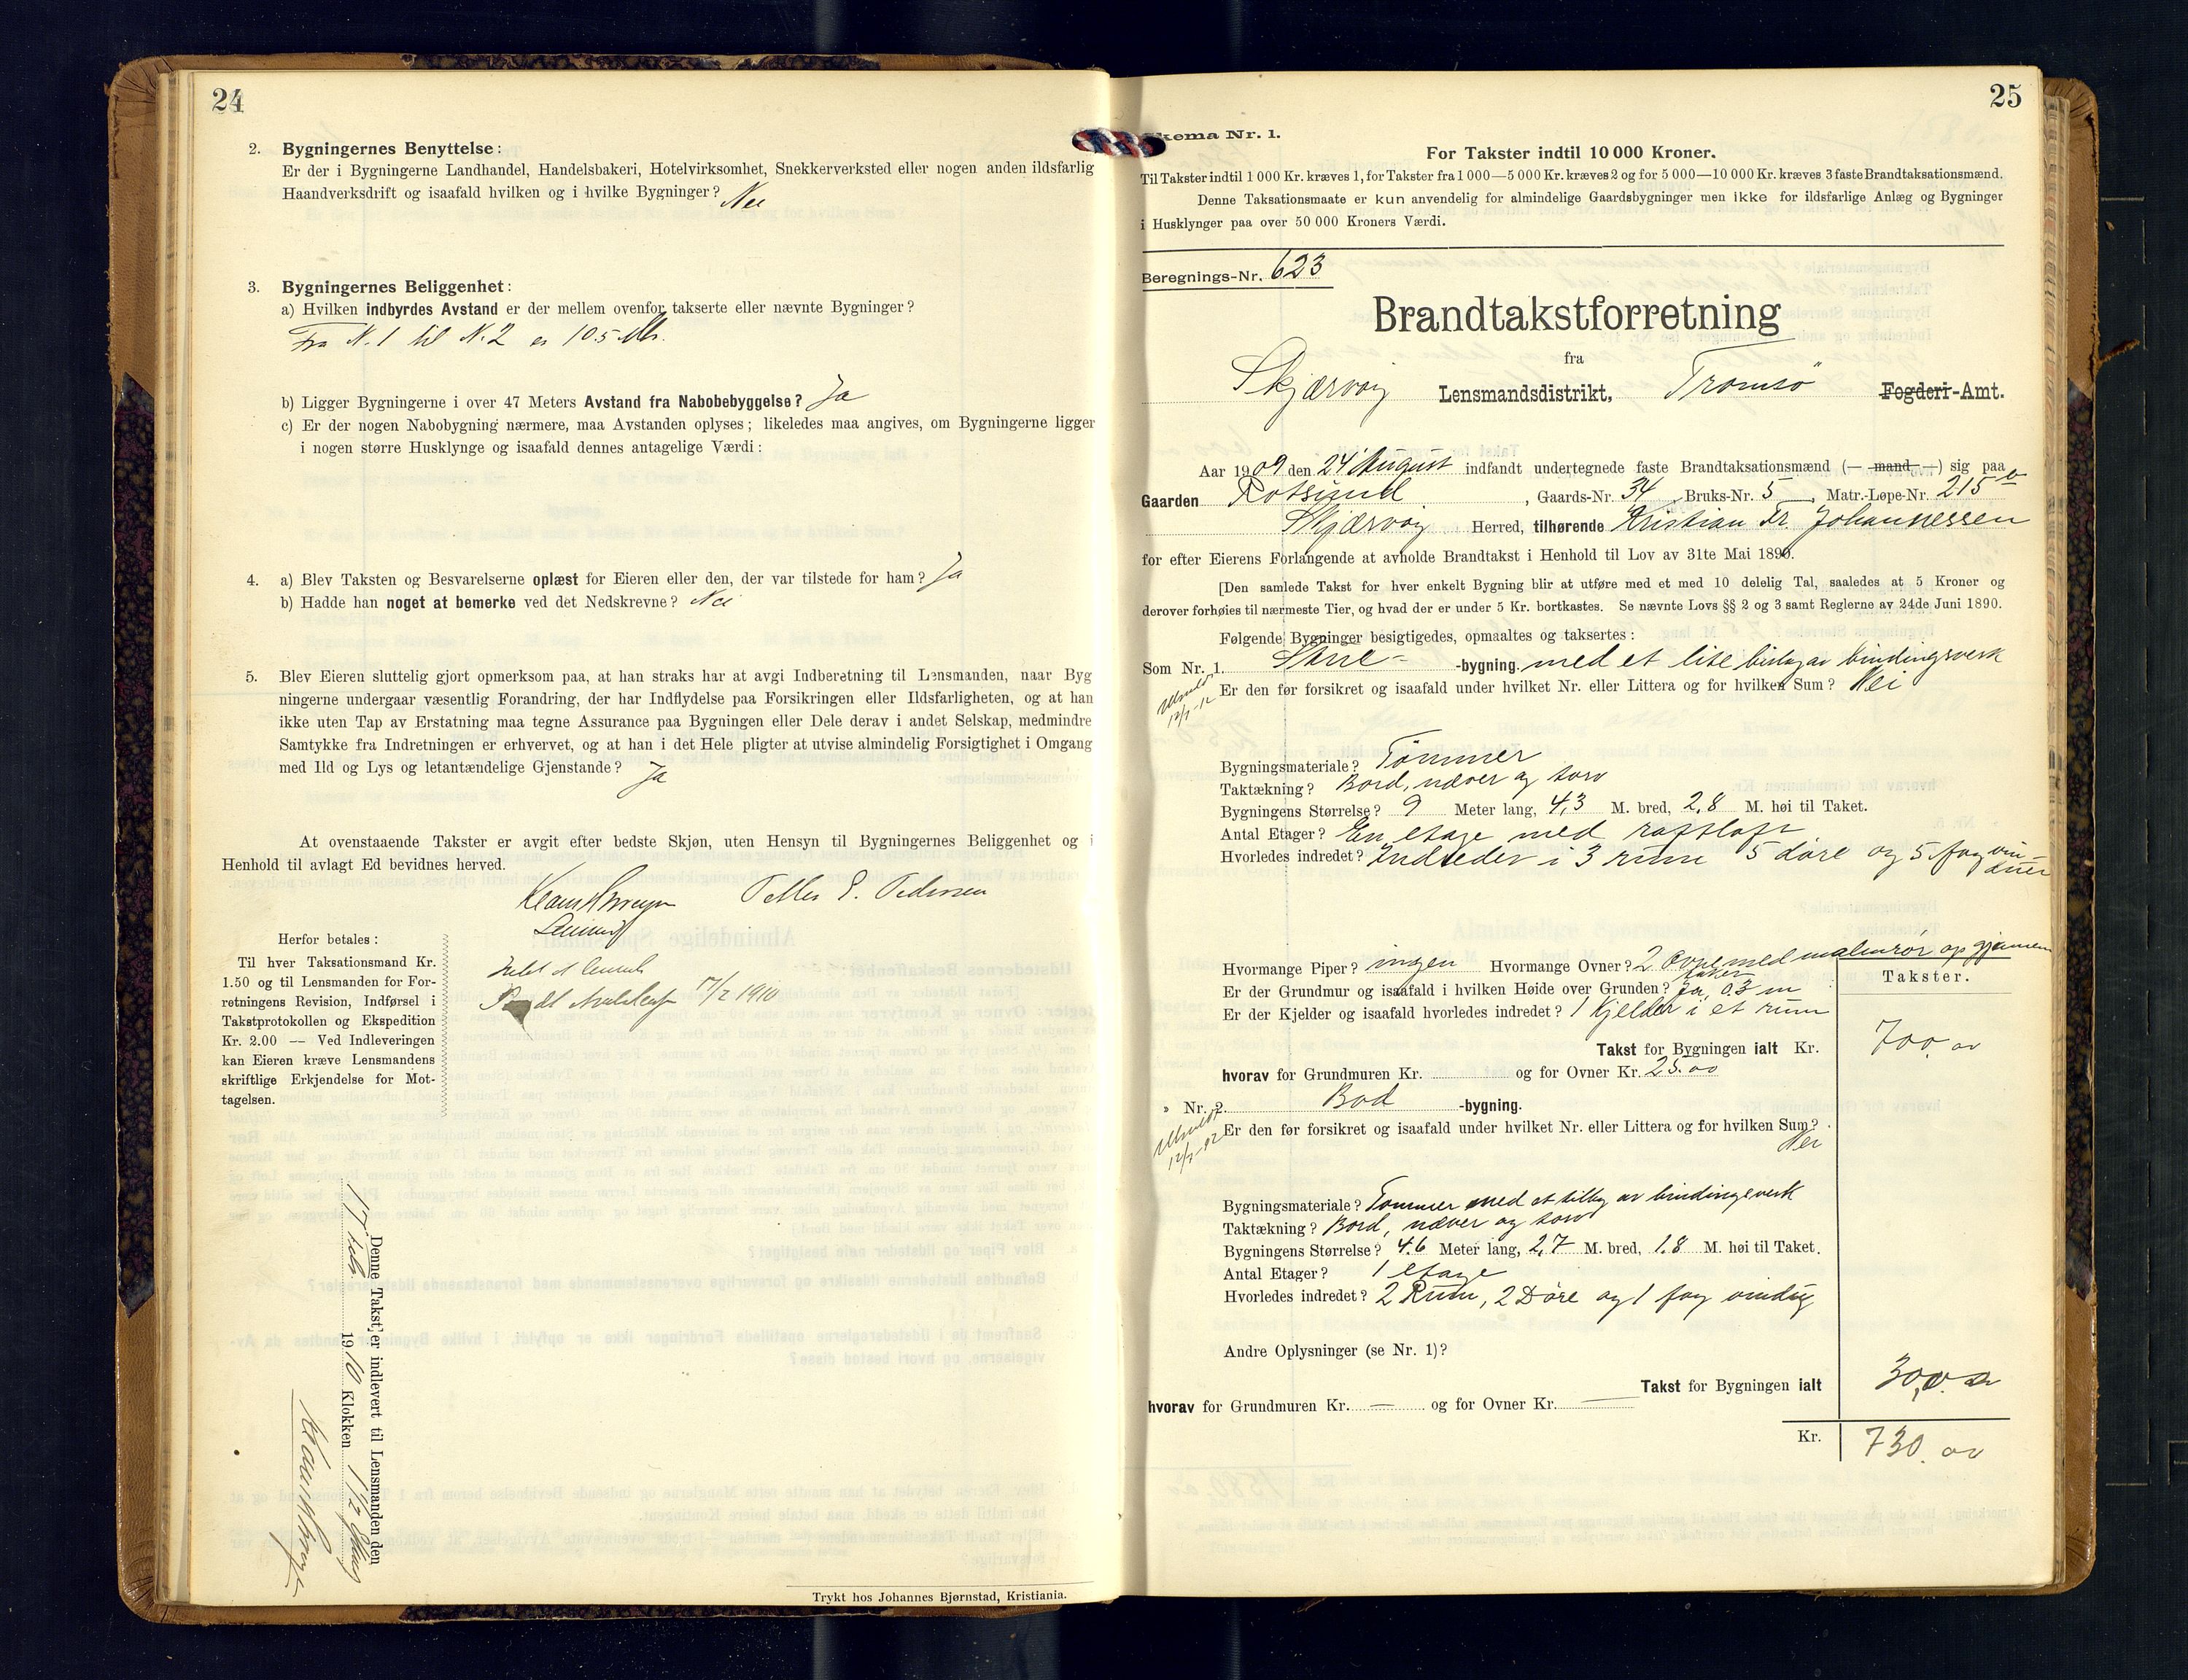 24
2. Bygningernes Benyttelse:
Er der i Bygningerne Landhandel, Handelsbakeri, Hotelvirksomhet, Snekkerverksted eller nogen anden ildsfarlig
Haandverksdrift og isaafald hvilken og i hvilke Bygninger? Nei
3. Bygningernes Beliggenhet:
a) Hvilken indbyrdes Avstand er der mellem ovenfor takserte eller nævnte Bygninger?
Fra N. 1 til N. 2 er 10.5 Mtr.
b) Ligger Bygningerne i over 47 Meters Avstand fra Nabobebyggelse? Ja
c) Er der nogen Nabobygning nærmere, maa Avstanden oplyses; likeledes maa angives, om Bygningerne ligger
i nogen større Husklynge og isaafald dennes antagelige Værdi:
4. a) Blev Taksten og Besvarelserne oplæst for Eieren eller den, der var tilstede for ham? Ja
b) Hadde han noget at bemerke ved det Nedskrevne? Nei
5. Blev Eieren sluttelig gjort opmerksom paa, at han straks har at avgi Indberetning til Lensmanden, naar Byg
ningerne undergaar væsentlig Forandring, der har Indflydelse paa Forsikringen eller Ildsfarligheten, og at han
ikke uten Tap av Erstatning maa tegne Assurance paa Bygningen eller Dele derav i andet Selskap, medmindre
Samtykke fra Indretningen er erhvervet, og at han i det Hele pligter at utvise almindelig Forsigtighet i Omgang
med Ild og Lys og letantændelige Gjenstande? Ja
At ovenstaaende Takster er avgit efter bedste Skjøn, uten Hensyn til Bygningernes Beliggenhet og i
Henhold til avlagt Ed bevidnes herved.
Peder E. Pedersen
Herfor betales:
Til hver Taksationsmand Kr.
1.50 og til Lensmanden for For-
retningens Revision, Indførsel i
Takstprotokollen og Ekspedition
Kr. 2.00 — Ved Indleveringen
kan Eieren kræve Lensmandens
skriftlige Erkjendelse for Mot-
tagelsen.
17/2 1910
Denne Takst er indlevert til Lensmanden den
17 febr. 1910 Klokken 1 1/2
Trykt hos Johannes Bjørnstad, Kristiania.
25
Skema Nr. 1.
For Takster indtil 10 000 Kroner.
Til Takster indtil 1 000 Kr. kræves 1, for Takster fra 1 000—5 000 Kr. kræves 2 og for 5 000—10 000 Kr. kræves 3 faste Brandtaksationsmænd.
Denne Taksationsmaate er kun anvendelig for almindelige Gaardsbygninger men ikke for ildsfarlige Anlæg og Bygninger
i Husklynger paa over 50 000 Kroners Værdi.
Beregnings-Nr. 623
Brandtakstforretning
fra
Skjærvøy Lensmandsdistrikt, Tromsø Fogderi-Amt.
Aar 1909 den 24 August indfandt undertegnede faste Brandtaksationsmænd (— mand —) sig paa
Gaarden Rotsund, Gaards-Nr. 34, Bruks-Nr. 5, Matr.-Løpe-Nr. 215 b
Skjærvøy Herred, tilhørende Kristian Fr. Johannessen
for efter Eierens Forlangende at avholde Brandtakst i Henhold til Lov av 31te Mai 1890.
[Den samlede Takst for hver enkelt Bygning blir at utføre med et med 10 delelig Tal, saaledes at 5 Kroner og
derover forhøies til nærmeste Tier, og hvad der er under 5 Kr. bortkastes. Se nævnte Lovs §§ 2 og 3 samt Reglerne av 24de Juni 1890.
Følgende Bygninger besigtigedes, opmaaltes og taksertes:
Som Nr. 1. Stue- -bygning. med et lite bislag av bindingsverk
Er den før forsikret og isaafald under hvilket Nr. eller Littera og for hvilken Sum? Nei
Utmeldt 12/7-12
Bygningsmateriale? Tømmer
Taktækning? Bord, næver og torv
Bygningens Størrelse? 9 Meter lang, 4,3 M. bred, 2,8 M. høi til Taket.
Antal Etager? En etage med raftloft
Hvorledes indredet? Indredet i 3 rum 5 døre og 5 fag vin-
duer
Hvormange Piper? ingen Hvormange Ovner? 2 Ovne med malmrør op gjennem
taket
Er der Grundmur og isaafald i hvilken Høide over Grunden? Ja, 0.3 m
Er der Kjelder og isaafald hvorledes indredet? 1 Kjelder i et rum
Takster.
Takst for Bygningen ialt Kr. 700. oo
hvorav for Grundmuren Kr. og for Ovner Kr. 25.oo
» Nr. 2. Bod -bygning.
Er den før forsikret og isaafald under hvilket Nr. eller Littera og for hvilken Sum?
Nei
Utmeldt 12/7-12
Bygningsmateriale? Tømmer med et tilbyg av bindingsverk
Taktækning? Bord, næver og torv
Bygningens Størrelse? 4.6 Meter lang, 2,7 M. bred, 1.8 M. høi til Taket.
Antal Etager? 1 etage
Hvorledes indredet? 2 Rum, 2 Døre og 1 fag vindu
Andre Oplysninger (se Nr. 1)?
Takst for Bygningen ialt 30,00
hvorav for Grundmuren Kr. — og for Ovner Kr. —
Kr. 730. oo